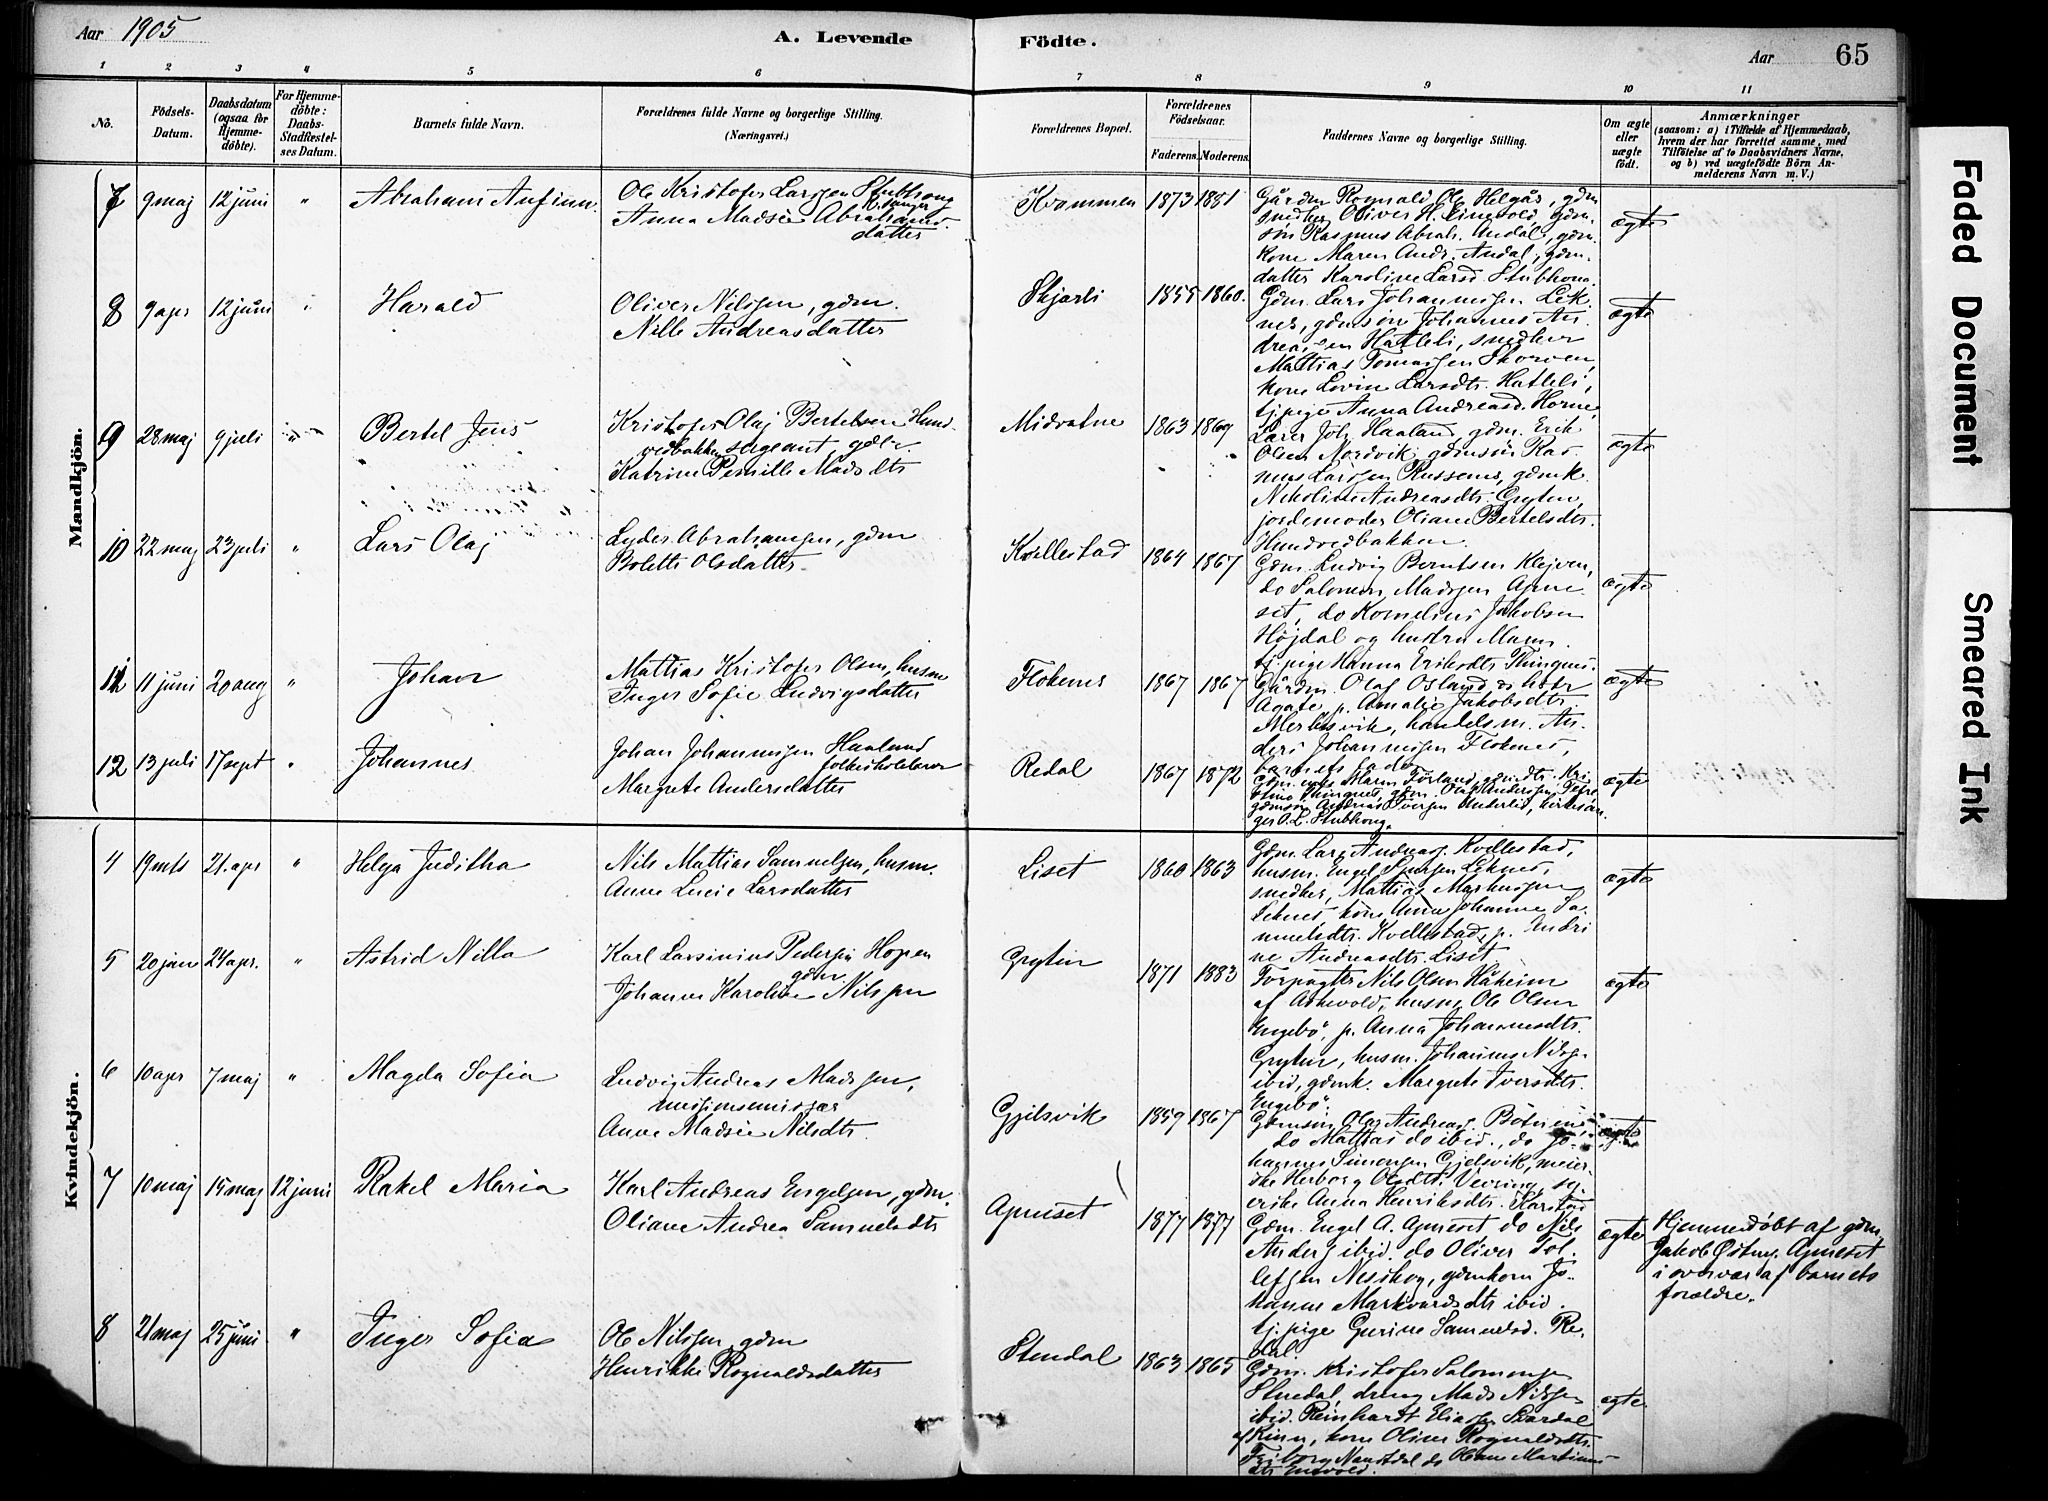 Aar 1905
A. Levende Födte.
Aar 65
1 2 3 4 5 6 7 8 9 10 11
No.
Födsels-Datum.
Daabsdatum (ogsaa for Hjemme-döbte).
For Hjemme-döbte: Daabs-Stadfæstel-ses Datum.
Barnets fulde Navn.
Forældrenes fulde Navne og borgerlige Stilling. (Næringsvei.)
Forældrenes Bopæl.
Forældrenes Födselsaar.
Faderens. Moderens.
Faddernes Navne og borgerlige Stilling.
Om ægte eller uægte födt.
Anmærkninger
(saasom: a) i Tilfælde af Hjemmedaab,
hvem der har forrettet samme, med
Tilföielse af to Daabsvidners Navne,
og b) ved uægtefödte Börn An-
melderens Navn m. V.)
Mandkjön.
7 9 maj 12 juni " Abraham Anfinn.
Ole Kristofer Larssen Stubhoug
k.sanger
Anna Madsie Abrahams-
datter
Kvammen 1873 1881
Gårdm Rognald Ole Helgås, gdm
snedker Oliver H. Eimevold, gdm.
søn Rasmus Abrah. Andal, gdm.
kone Maren Andr. Andal, gdm.
datter Karoline Larsd Stubhoug.
ægte
8 9 apr 12 juni " Harald
Oliver Nilssen, gdm.
Nille Andreasdatter
Skjerli 1855 1860.
Gdm. Lars Johannessen Lek-
nes, gdmsøn Johannes An-
dreassen Hatleli, snedker
Mattias Tomassen Skorven,
kone Lovise Larsdtr. Hatleli,
tj.pige Anna Andreasd. Horne,
ægte
9 28 maj 9 juli " Bertel Jens
Kristofer Olaj Bertelsen Hund-
vedbakken sergeant, gdbr.
Katrine Pernille Madsdtr
Midvatne 1863 1869
Lærer Joh. Haaland, gdm. Erik
Olsen Nordvik, gdmsøn Ras-
mus Larssen Russenes, gdmk.
Nikoline Andreasdtr. Gryten,
jordemoder Oliane Bertelsdtr.
Hundvedbakken.
ægte
10 22 maj 23 juli " Lars Olaj
Lyder Abrahamsen, gdm
Bolette Olsdatter
Kvellestad 1864 1867
Gdm. Ludvig Berntsen Klejven,
do Salomon Madssen Apne-
set, do Kornelius Jakobsen
Højdal og hustru Maren.
tj.pige Hanna Eriksdtr Thingnes.
ægte
11 11 juni 20 aug " Johan
Mattias Kristofer Olsen, husm
Inger Sofie Ludvigsdatter
Flokenes 1867 1867
Gårdm. Olaf Osland &
Agate p. Amalie Jakobsdtr.
handelsm. An-
ders Johannessen Flokenes,
barnets fader
ægte
12 13 juli 17 sept " Johannes
Johan Johannessen Haaland
folkeskolelærer
Margrete Andersdatter
Redal 1867 1872
Førland, gdmdtr. Kri-
stine Thingnes, gdm. Olai Anderssen
gdmsøn Andreas Iversen Underlid, kirkesan-
ger O. L. Stubhoug.
ægte
Kvindekjön.
4 19 mts 21. apr " Helga Juditha
Nils Mattias Samuelsen, husm.
Anne Lucie Larsdatter
Liset 1860 1863
Gdm. Lars Andreass. Kvellestad,
husm. Engel Leknes,
snedker, Mattias Markussen
Leknes, kone Anna Johanne Sa-
muelsdtr. Kvellestad, p. Andri-
ne Andreasdtr. Liset
ægte
5 20 jan 24 apr. " Astrid Nilla
Karl Larsinius Pedersen Hopen
gdm
Johanne Karoline Nilssen
Gryten 1871 1883
Forpagter Nils Olsen Håheim
af Askevold, husm. Ole Olsen
Engebø, p. Anna Johannesdtr.
Gryten, husm. Johannes Nilss.
ibid, gdmk. Margrete Iversdtr.
Engebø.
ægte
6 10 apr 7 maj " Magda Sofia
Ludvig Andreas Madssen,
missionsemissær
Anne Madsie Nilsdtr.
Gjelsvik 1859 1867
Gdmsøn Olai Andreass. Botnen,
do Mattias do ibid., do Jo-
hannes Simonsen Gjelsvik, meier-
ske Herborg Olsdtr. Vevring, sy-
erske Anna Henriksdtr. Karstad
ægte
7 10 maj 15 maj 12 juni Rakel Maria
Karl Andreas Engelsen, gdm.
Oliane Andrea Samuelsdtr
Apneset 1877 1877
Gdm. Engel A. Apneset do Nils
Anders. ibid. do Oliver Tol-
lefsen Neskog, gdmkone Jo-
hanne Markvardsdtr ibid.
tj.pige Gurine Samuelsd. Re-
dal.
ægte
Hjemmedøbt af gdm.
Jakob Østens. Apneset
i overvær af barnets
forældre.
8 21 maj 25 juni " Inger Sofia
Ole Nilssen, gdm
Henrikke Rognaldsdatter
Stendal 1863 1865
Gdm. Kristofer Salomonsen
Stendal, dreng Mads Nilssen
ibid. Reinhardt Eliassen Stardal
af Kinn, kone Oline Rognaldsdtr.
Friborg Naustdal do Oline Martinus-
dtr Eievold.
ægte
Faded Document
Smeared Ink